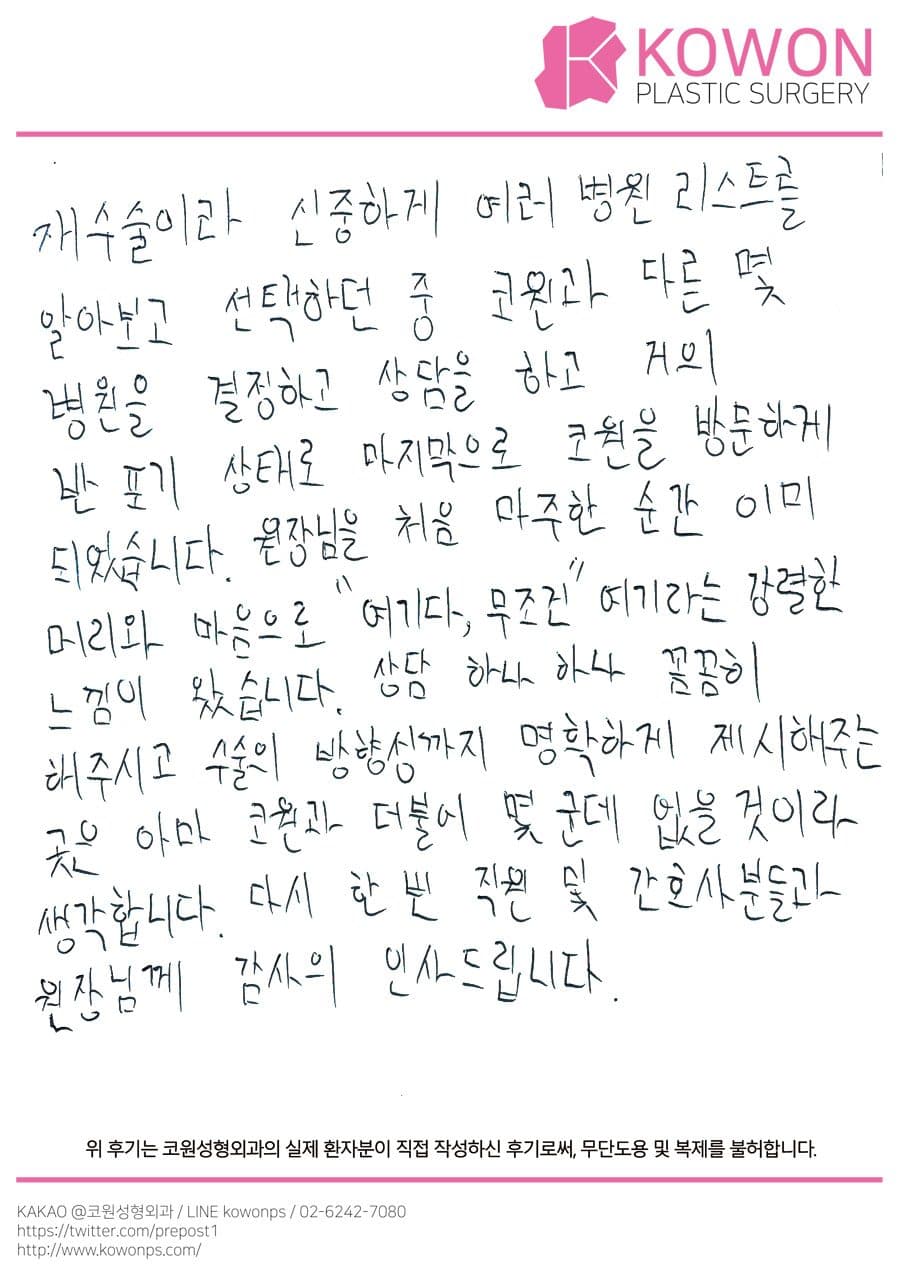 KOWON
PLASTIC SURGERY
재수술이라 신중하게 여러 병원 리스트를
알아보고 선택하던 중 코원과 다른 몇
병원을 결정하고 상담을 하고 거의
반 포기 상태로 마지막으로 코원을 방문하게
되었습니다. 원장님을 처음 마주한 순간 이미
머리와 마음으로 "여기다, 무조건" 여기라는 강렬한
느낌이 왔습니다. 상담 하나 하나 꼼꼼히
해주시고 수술의 방향성까지 명확하게 제시해주는
곳은 아마 코원과 더불어 몇 군데 없을 것이라
생각합니다. 다시 한 번 직원 및 간호사분들과
원장님께 감사의 인사드립니다.
위 후기는 코원성형외과의 실제 환자분이 직접 작성하신 후기로써, 무단도용 및 복제를 불허합니다.
KAKAO @코원성형외과 / LINE kowonps / 02-6242-7080
https://twitter.com/prepost1
http://www.kowonps.com/